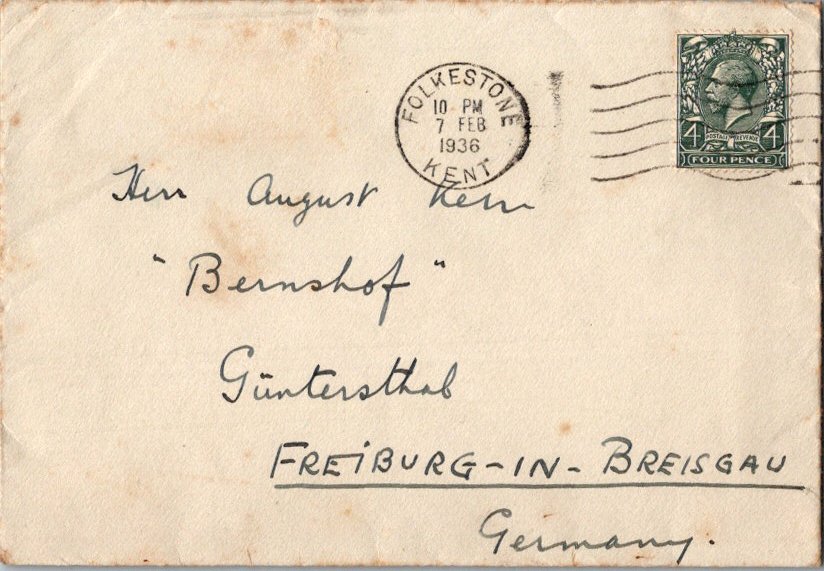 FOLKESTONE
10 PM
7 FEB
1936
KENT
4 POSTAGE REVENUE 4
FOUR PENCE
Herr August Kern
"Bernshof"
Güntersthal
FREIBURG-IN-BREISGAU
Germany.